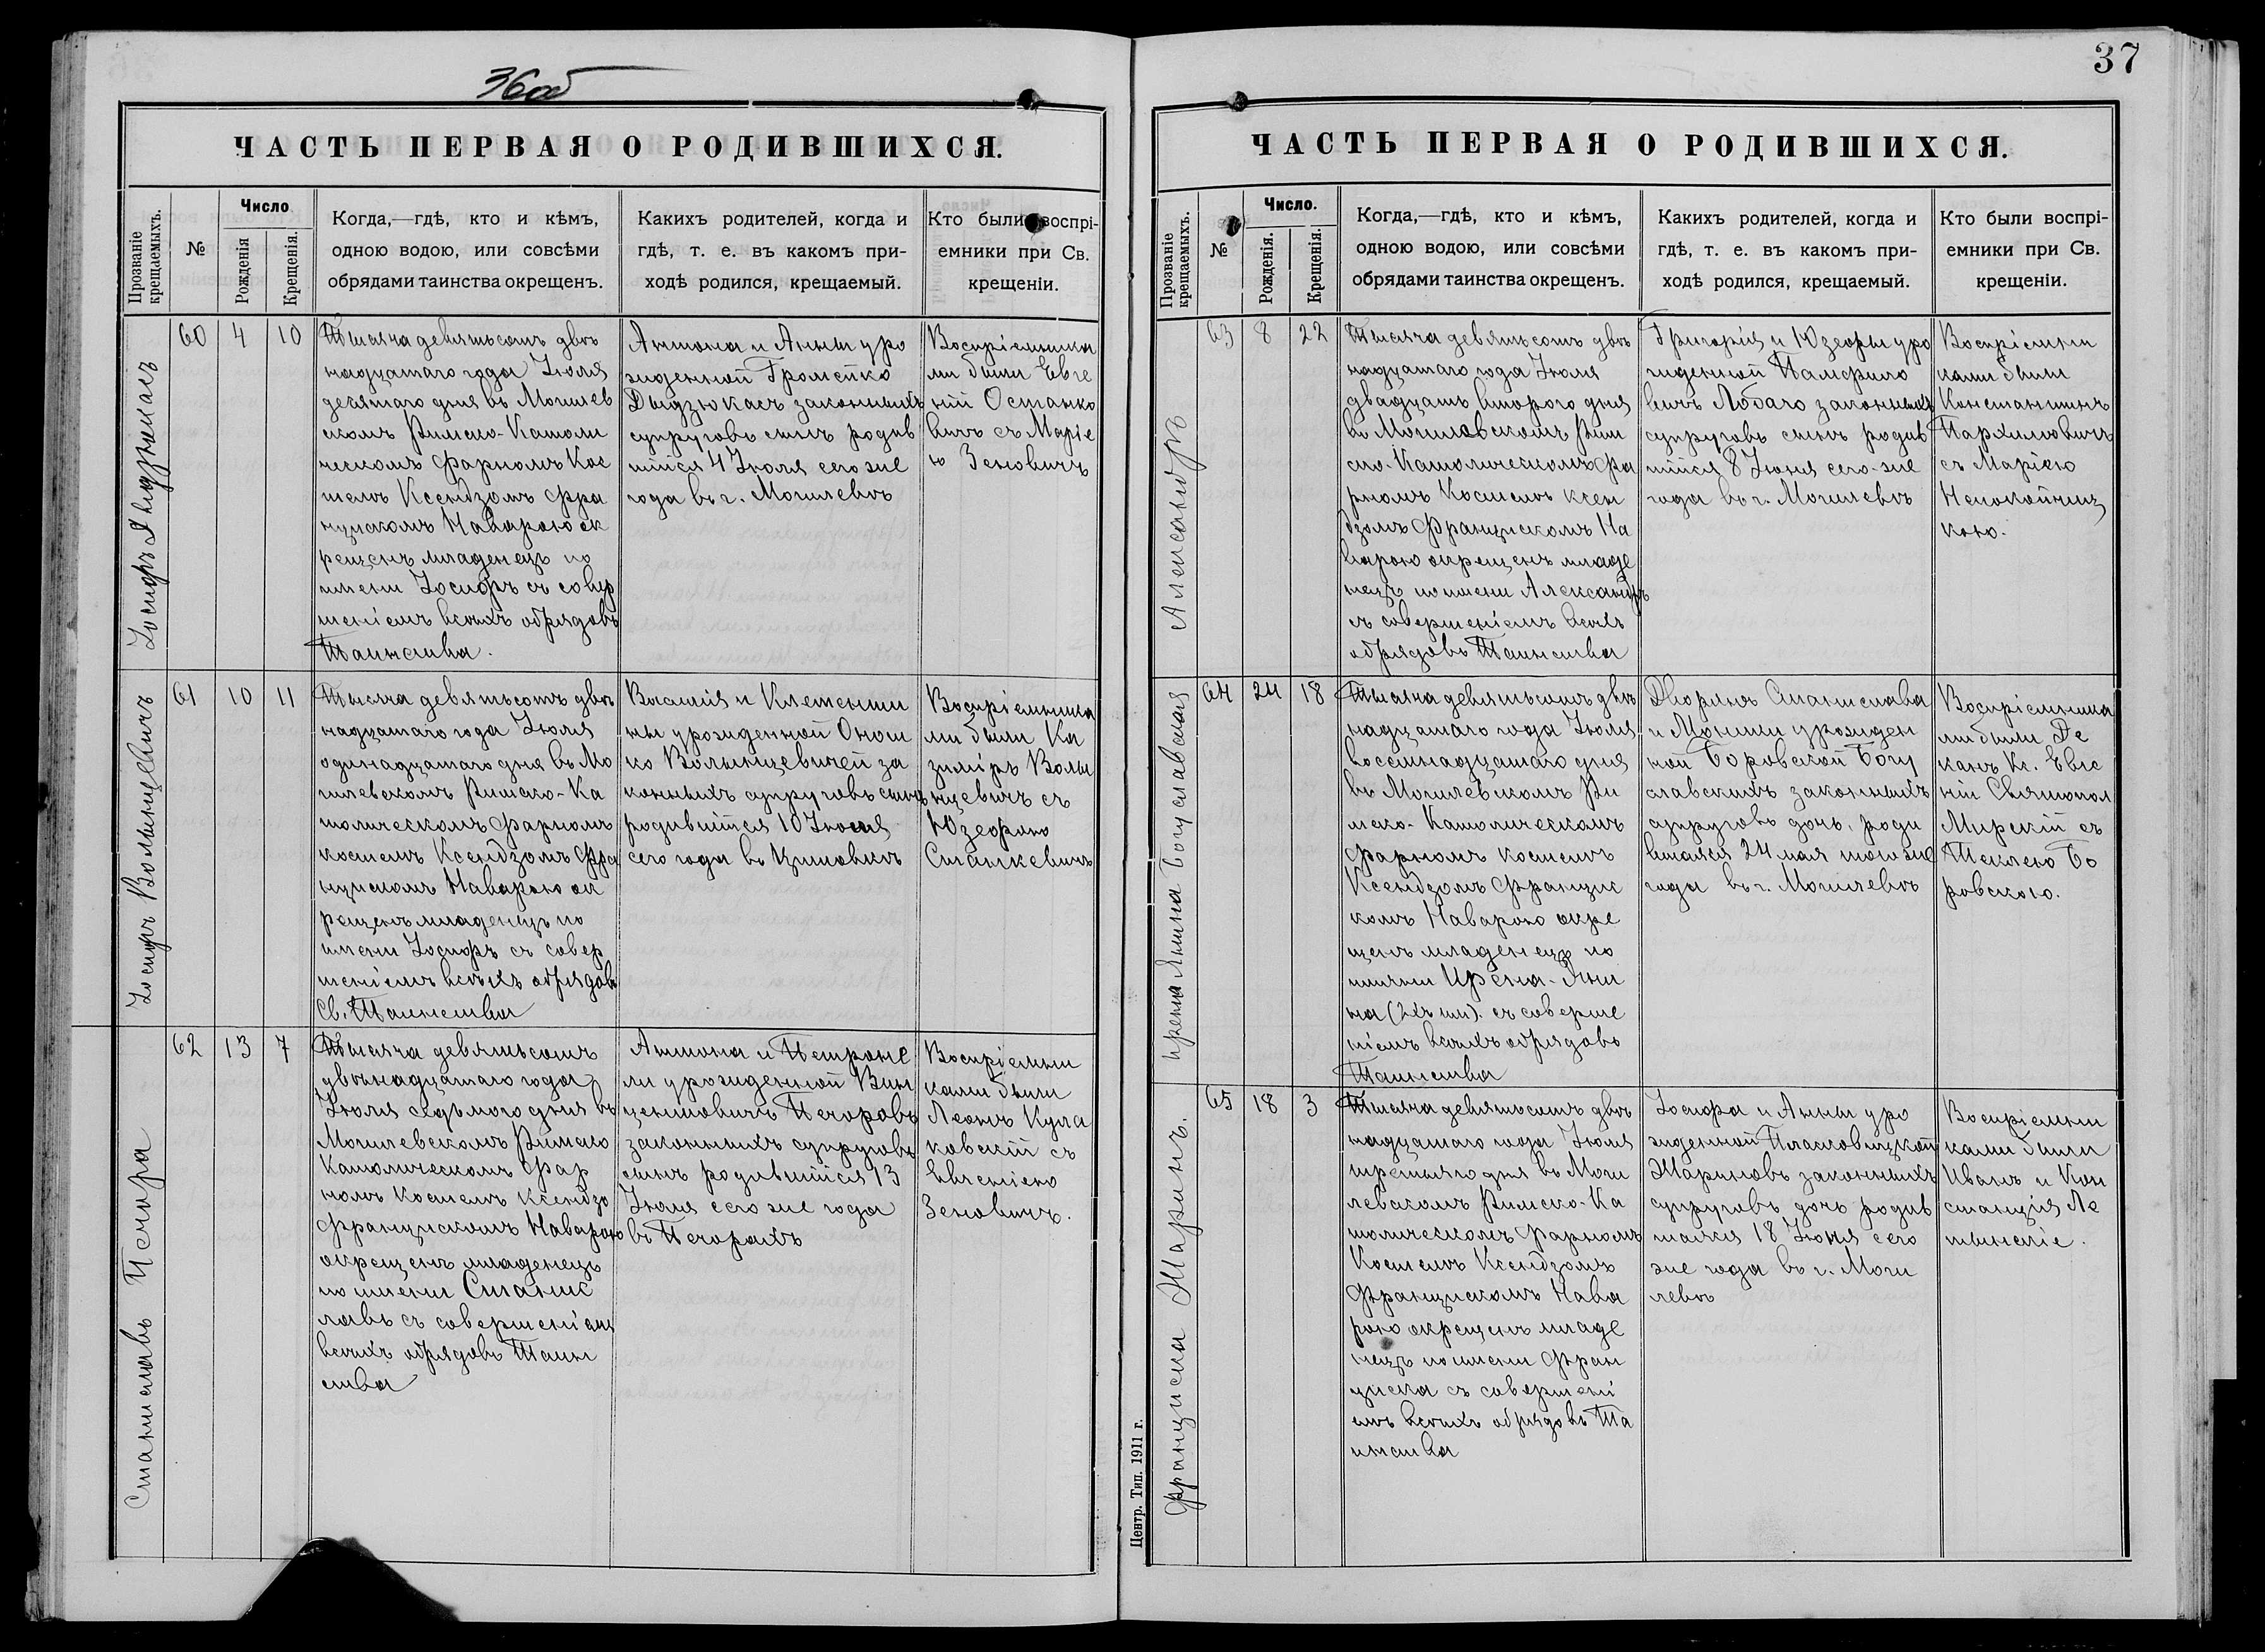 36об
ЧАСТЬ ПЕРВАЯ О РОДИВШИХСЯ.
Прозваніе крещаемыхъ.
№
Число
Рожденія
Крещенія.
Когда,—гдѣ, кто и кѣмъ,
одною водою, или совсѣми
обрядами таинства окрещенъ.
Какихъ родителей, когда и
гдѣ, т. е. въ какомъ при-
ходѣ родился, крещаемый.
Кто были воспрі-
емники при Св.
крещеніи.
Іосифъ
60 4 10
Тысяча девятьсотъ двѣ
надцатаго года Іюля
девятаго дня въ Могилев
скомъ Римско-Католи
ческомъ Фарномъ Кос
телѣ Ксендзомъ Фра
нцискомъ Наварою ок
рещенъ младенецъ по
имени Іосифъ съ совер
шеніемъ всѣхъ обрядовъ
Таинства.
Антона и Анны уро
жденной Громейко
законныхъ
супруговъ сынъ родив
шійся 4 Іюля сего же
года въ г. Могилевѣ
Воспріемника
ми были Евге
ній Останко
вичъ съ Маріе
ю Зеновичъ
Іосифъ Волынцевичъ
61 10 11
Тысяча девятьсотъ двѣ
надцатаго года Іюля
одинадцатаго дня въ Мо
гилевскомъ Римско-Ка
толическомъ Фарномъ
костелѣ Ксендзомъ Фра
нцискомъ Наварою ок
рещенъ младенецъ по
имени Іосифъ съ совер
шеніемъ всѣхъ обрядовъ
Св. Таинства
Василія и Клементи
ны урожденной Онош
ко Волынцевичей за
конныхъ супруговъ сынъ
родившійся 10 Іюня
сего года въ
Воспріемника
ми были Ка
зиміръ Волы
нцевичъ съ
Юзефою
Станкевичъ
Станиславъ Печора
62 13 7
Тысяча девятьсотъ
двѣнадцатаго года
Іюля седьмого дня въ
Могилевскомъ Римско
Католическомъ Фар
номъ Костелѣ Ксендзо
Францискомъ Наварою
окрещенъ младенецъ
по имени Станис
лавъ съ совершеніемъ
всѣхъ обрядовъ Таин
ства
Антона и Петроне
ли урожденной Вин
центовичъ Печоровъ
законныхъ супруговъ
сынъ родившійся 13
Іюня сего же года
въ Печорахъ
Воспріемни
ками были
Леонъ Кула
ковскій съ
Евгеніею
Зеновичъ.
37
ЧАСТЬ ПЕРВАЯ О РОДИВШИХСЯ.
Прозваніе крещаемыхъ.
№
Число.
Рожденія.
Крещенія.
Когда,—гдѣ, кто и кѣмъ,
одною водою, или совсѣми
обрядами таинства окрещенъ.
Какихъ родителей, когда и
гдѣ, т. е. въ какомъ при-
ходѣ родился, крещаемый.
Кто были воспрі-
емники при Св.
крещеніи.
Александръ
63 8 22
Тысяча девятьсотъ двѣ
надцатаго года Іюля
двадцать второго дня
въ Могилевскомъ Рим
ско-Католическомъ Фа
рномъ Костелѣ Ксен
дзомъ Францискомъ На
варою окрещенъ младе
нецъ по имени Александръ
съ совершеніемъ всѣхъ
обрядовъ Таинства
Григорія и Юзефы уро
жденной Памфило
вичъ Лобачо законныхъ
супруговъ сынъ родив
шійся 8 Іюня сего-же
года въ г. Могилевѣ
Воспріемни
ками были
Константинъ
Пархимовичъ
съ Маріею
Непокойчиц
кою.
Ирена Янина Богуславская
64 24 18
Тысяча девятьсотъ двѣ
надцатаго года Іюля
восемнадцатаго дня
въ Могилевскомъ Ри
мско-Католическомъ
Фарномъ костелѣ
Ксендзомъ Францис
комъ Наварою окре
щенъ младенецъ по
имени Ирена-Яни
на (2хъ им). съ соверше
ніемъ всѣхъ обрядовъ
Таинства
Дворянъ Станислава
и Моники урожден
ной Боровской Богу
славскихъ законныхъ
супруговъ дочь, роди
вшаяся 24 мая того же
года въ г. Могилевѣ
Воспріемника
ми были Де
канъ Кс. Евге
ній Святопол
Мирскій съ
Теклею Бо
ровскою.
Франциска Жаринъ.
65 18 3
Тысяча девятьсотъ двѣ
надцатаго года Іюля
третьяго дня въ Моги
левскомъ Римско-Ка
толическомъ Фарномъ
Костелѣ Ксендзомъ
Францискомъ Нава
рою окрещенъ младе
нецъ по имени Фран
циска съ совершені
емъ всѣхъ обрядовъ Та
инства
Іосифа и Анны уро
жденной Пласковицкой
Жариновъ законныхъ
супруговъ дочь родив
шаяся 18 Іюня сего
же года въ г. Моги
левѣ
Воспріемни
ками были
Иванъ и Кон
станція Ле
Центр. Тип. 1911 г.